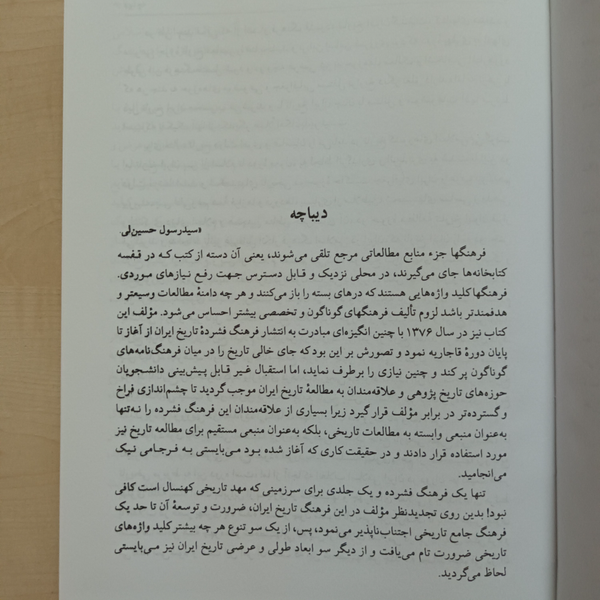 دیباچه
«سیدرسول حسین‌لی
فرهنگها جزء منابع مطالعاتی مرجع تلقی می‌شوند، یعنی آن دسته از کتب که در قفسه
کتابخانه‌ها جای می‌گیرند، در محلی نزدیک و قابل دسترس جهت رفع نیازهای موردی.
فرهنگها کلید واژه‌هایی هستند که درهای بسته را باز می‌کنند و هر چه دامنهٔ مطالعات وسیعتر و
هدفمندتر باشد لزوم تألیف فرهنگهای گوناگون و تخصصی بیشتر احساس می‌شود. مؤلف این
کتاب نیز در سال ۱۳۷۶ با چنین انگیزه‌ای مبادرت به انتشار فرهنگ فشردهٔ تاریخ ایران از آغاز تا
پایان دورهٔ قاجاریه نمود و تصورش بر این بود که جای خالی تاریخ را در میان فرهنگ‌نامه‌های
گوناگون پر کند و چنین نیازی را برطرف نماید، اما استقبال غیر قابل پیش‌بینی دانشجویان
حوزه‌های تاریخ پژوهی و علاقه‌مندان به مطالعهٔ تاریخ ایران موجب گردید تا چشم‌اندازی فراخ
و گسترده‌تر در برابر مؤلف قرار گیرد زیرا بسیاری از علاقه‌مندان این فرهنگ فشرده را نه‌تنها
به‌عنوان منبعی وابسته به مطالعات تاریخی، بلکه به‌عنوان منبعی مستقیم برای مطالعه تاریخ نیز
مورد استفاده قرار دادند و در حقیقت کاری که آغاز شده بود می‌بایستی به فرجامی نیک
می‌انجامید.
تنها یک فرهنگ فشرده و یک جلدی برای سرزمینی که مهد تاریخی کهنسال است کافی
نبود! بدین روی تجدیدنظر مؤلف در این فرهنگ تاریخ ایران، ضرورت و توسعهٔ آن تا حد یک
فرهنگ جامع تاریخی اجتناب‌ناپذیر می‌نمود، پس، از یک سو تنوع هر چه بیشتر کلید واژه‌های
تاریخی ضرورت تام می‌یافت و از دیگر سو ابعاد طولی و عرضی تاریخ ایران نیز می‌بایستی
لحاظ می‌گردید.